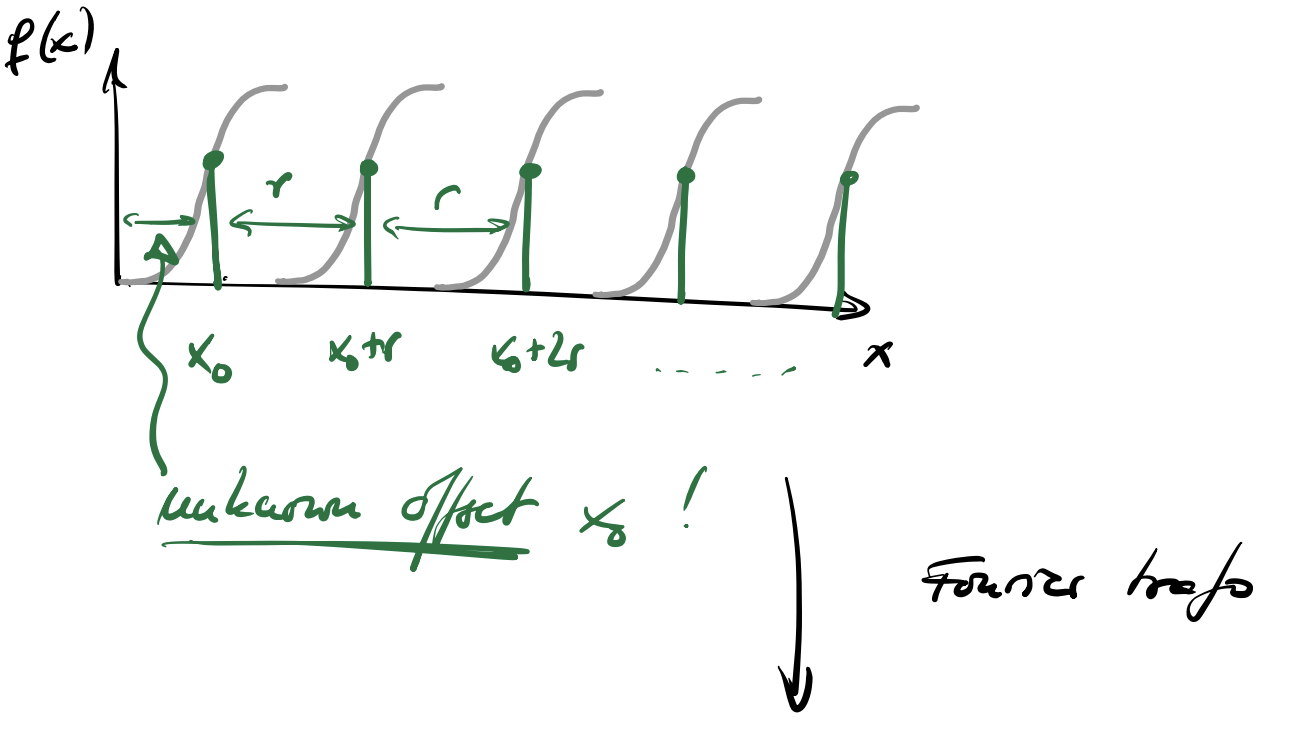 f(x)
r r
x₀ x₀+r x₀+2r ..... x
unknown offset x₀ !
Fourier trafo